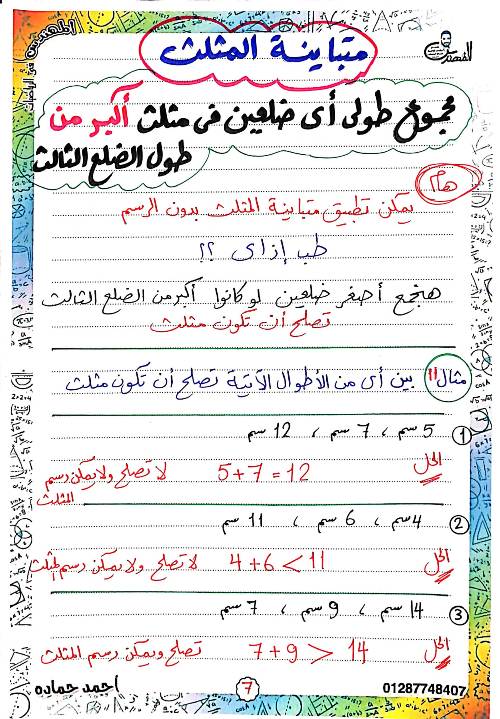 متباينة المثلث
مجموع طولى أى ضلعين فى مثلث أكبر من
طول الضلع الثالث
هام
يمكن تطبيق متباينة المثلث بدون الرسم
طب إزاى ؟؟
هنجمع أصغر ضلعين لو كانوا أكبر من الضلع الثالث
تصلح أن تكون مثلث
مثال !! بين أى من الأطوال الآتية تصلح أن تكون مثلث
① 5 سم ، 7 سم ، 12 سم
الحل 5+7=12 لا تصلح ولا يمكن رسم
المثلث
② 4 سم ، 6 سم ، 11 سم
الحل 4+6<11 لا تصلح ولا يمكن رسم المثلث
③ 14 سم ، 9 سم ، 7 سم
الحل 7+9>14 تصلح ويمكن رسم المثلث
01287748407
7
احمد حماده